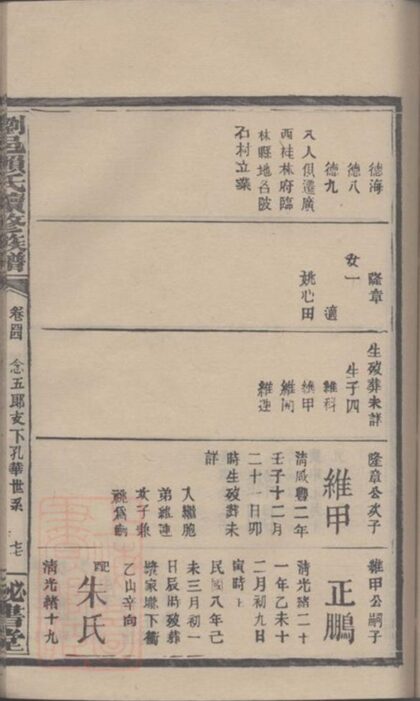 德海
德八
德九
八人俱遷廣
西桂林府臨
林縣地名陂
石村立業
隆章
女一 適
姚心田
生歿葬未詳
生子四
維科
維甲
維
維連
隆章公次子
維甲
清咸豐二年
壬子十二月
二十一日卯
時生歿葬未
詳
入繼胞
弟維連
次子兼
祧為嗣
維甲公嗣子
正鵬
清光緒二十
一年乙未十
二月初九日
寅時
民國八年己
未三月初一
日辰時歿葬
家壠下衝
乙山辛向
配朱氏
清光緒十九
瀏邑賴氏續修族譜
卷四
念五郎支下孔華世系
秘書堂